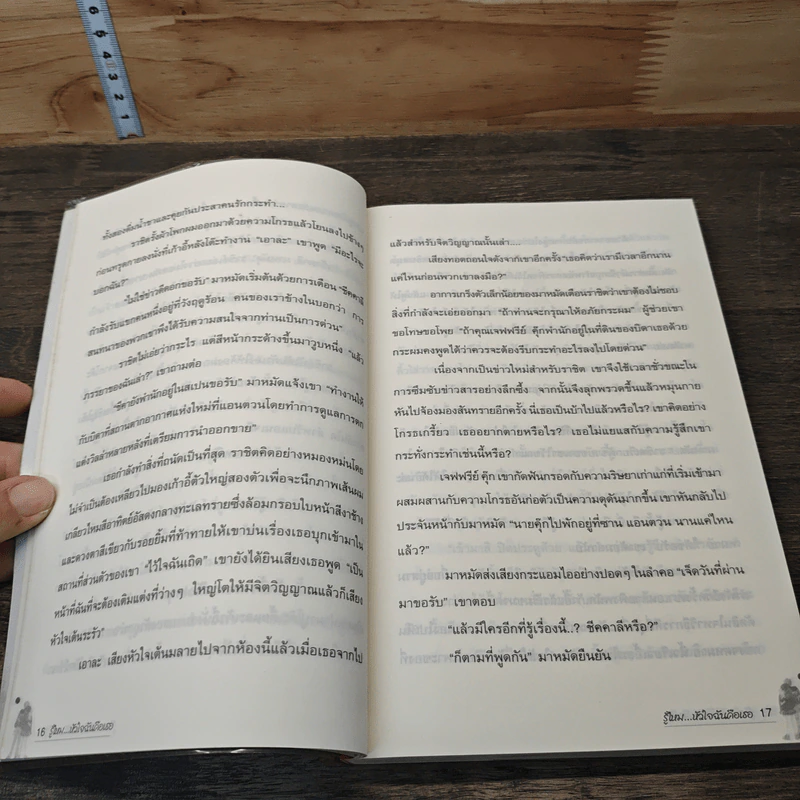 5
4
3
2
1
ทั้งสองดื่มน้ำชาและคุยกันประสาคนรักกระทำ...
ราชิดรั้งผ้าโพกผมออกมาด้วยความโกรธแล้วโยนลงไปข้างๆ
ก่อนทรุดกายลงนั่งที่เก้าอี้หลังโต๊ะทำงาน "เอาละ" เขาพูด "มีอะไรจะ
บอกฉัน?"
"ไม่ใช่ข่าวดีดอกขอรับ" มาหมัดเริ่มต้นด้วยการเตือน "ชีคคาลี
กำลังรับแขกคนหนึ่งอยู่ที่วังฤดูร้อน คนของเราข้างในบอกว่า การ
สนทนาของพวกเขาพึงได้รับความสนใจจากท่านเป็นการด่วน"
ราชิดไม่เอ่ยว่ากระไร แต่สีหน้ากระด้างขึ้นมาวูบหนึ่ง "แล้ว
ภรรยาของฉันเล่า?" เขาถามต่อ
"ซีดายังพำนักอยู่ในสเปนขอรับ" มาหมัดแจ้งเขา "ทำงานให้
กับบิดาที่สถานตากอากาศแห่งใหม่ที่แอนตวนโดยทำการดูแลการตก
แต่งวิลล่าหลายหลังที่เตรียมการนำออกขาย"
เธอกำลังทำสิ่งที่ถนัดเป็นที่สุด ราชิดคิดอย่างหมองหม่นโดย
ไม่จำเป็นต้องเหลียวไปมองเก้าอี้ตัวใหญ่สองตัวเพื่อจะนึกภาพเส้นผม
เกลียวไหมสีอาทิตย์อัสดงกลางทะเลทรายซึ่งล้อมกรอบใบหน้าสีงาช้าง
และดวงตาสีเขียวกับรอยยิ้มที่ท้าทายให้เขาบ่นเรื่องเธอบุกเข้ามาใน
สถานที่ส่วนตัวของเขา "ไว้ใจฉันเถิด" เขายังได้ยินเสียงเธอพูด "เป็น
หน้าที่ฉันที่จะต้องเติมแต่งที่ว่างๆ ใหญ่โตให้มีจิตวิญญาณแล้วก็เสียง
หัวใจเต้นระรัว"
เอาละ เสียงหัวใจเต้นมลายไปจากห้องนี้แล้วเมื่อเธอจากไป
16 รู้ไหม...หัวใจฉันคือเธอ
แล้วสำหรับจิตวิญญาณนั้นเล่า....
เสียงทอดถอนใจดังจากเขาอีกครั้ง "เธอคิดว่าเรามีเวลาอีกนาน
แค่ไหนก่อนพวกเขาลงมือ?"
อาการเกร็งตัวเล็กน้อยของมาหมัดเตือนราชิดว่าเขาต้องไม่ชอบ
สิ่งที่กำลังจะเอ่ยออกมา "ถ้าท่านจะกรุณาให้อภัยกระผม" ผู้ช่วยเขา
ขอโทษขอโพย "ถ้าคุณเจฟฟรีย์ คุ๊กพำนักอยู่ในที่ดินของบิดาเธอด้วย
กระผมคงพูดได้ว่าควรจะต้องรีบกระทำอะไรลงไปโดยด่วน"
เนื่องจากเป็นข่าวใหม่สำหรับราชิด เขาจึงใช้เวลาชั่วขณะใน
การซึมซับข่าวสารอย่างลึกซึ้ง จากนั้นจึงลุกพรวดขึ้นแล้วหมุนกาย
หันไปจ้องมองสันทรายอีกครั้ง นี่เธอเป็นบ้าไปแล้วหรือไร? เขาคิดอย่าง
โกรธเกรี้ยว เธออยากตายหรือไร? เธอไม่แยแสกับความรู้สึกเขา
กระทั่งกระทำเช่นนี้หรือ?
เจฟฟรีย์ คุ๊ก เขากัดฟันกรอดกับความริษยาเก่าแก่ที่เริ่มเข้ามา
ผสมผสานกับความโกรธอันก่อตัวเป็นความดุดันมากขึ้น เขาหันกลับไป
ประจันหน้ากับมาหมัด "นายคุ๊กไปพักอยู่ที่ซาน แอนตวน นานแค่ไหน
แล้ว?"
มาหมัดส่งเสียงกระแอมไออย่างปอดๆ ในลำคอ "เจ็ดวันที่ผ่าน
มาขอรับ" เขาตอบ
"แล้วมีใครอีกที่รู้เรื่องนี้..? ชีคคาลีหรือ?"
"ก็ตามที่พูดกัน" มาหมัดยืนยัน
รู้ไหม...หัวใจฉันคือเธอ 17